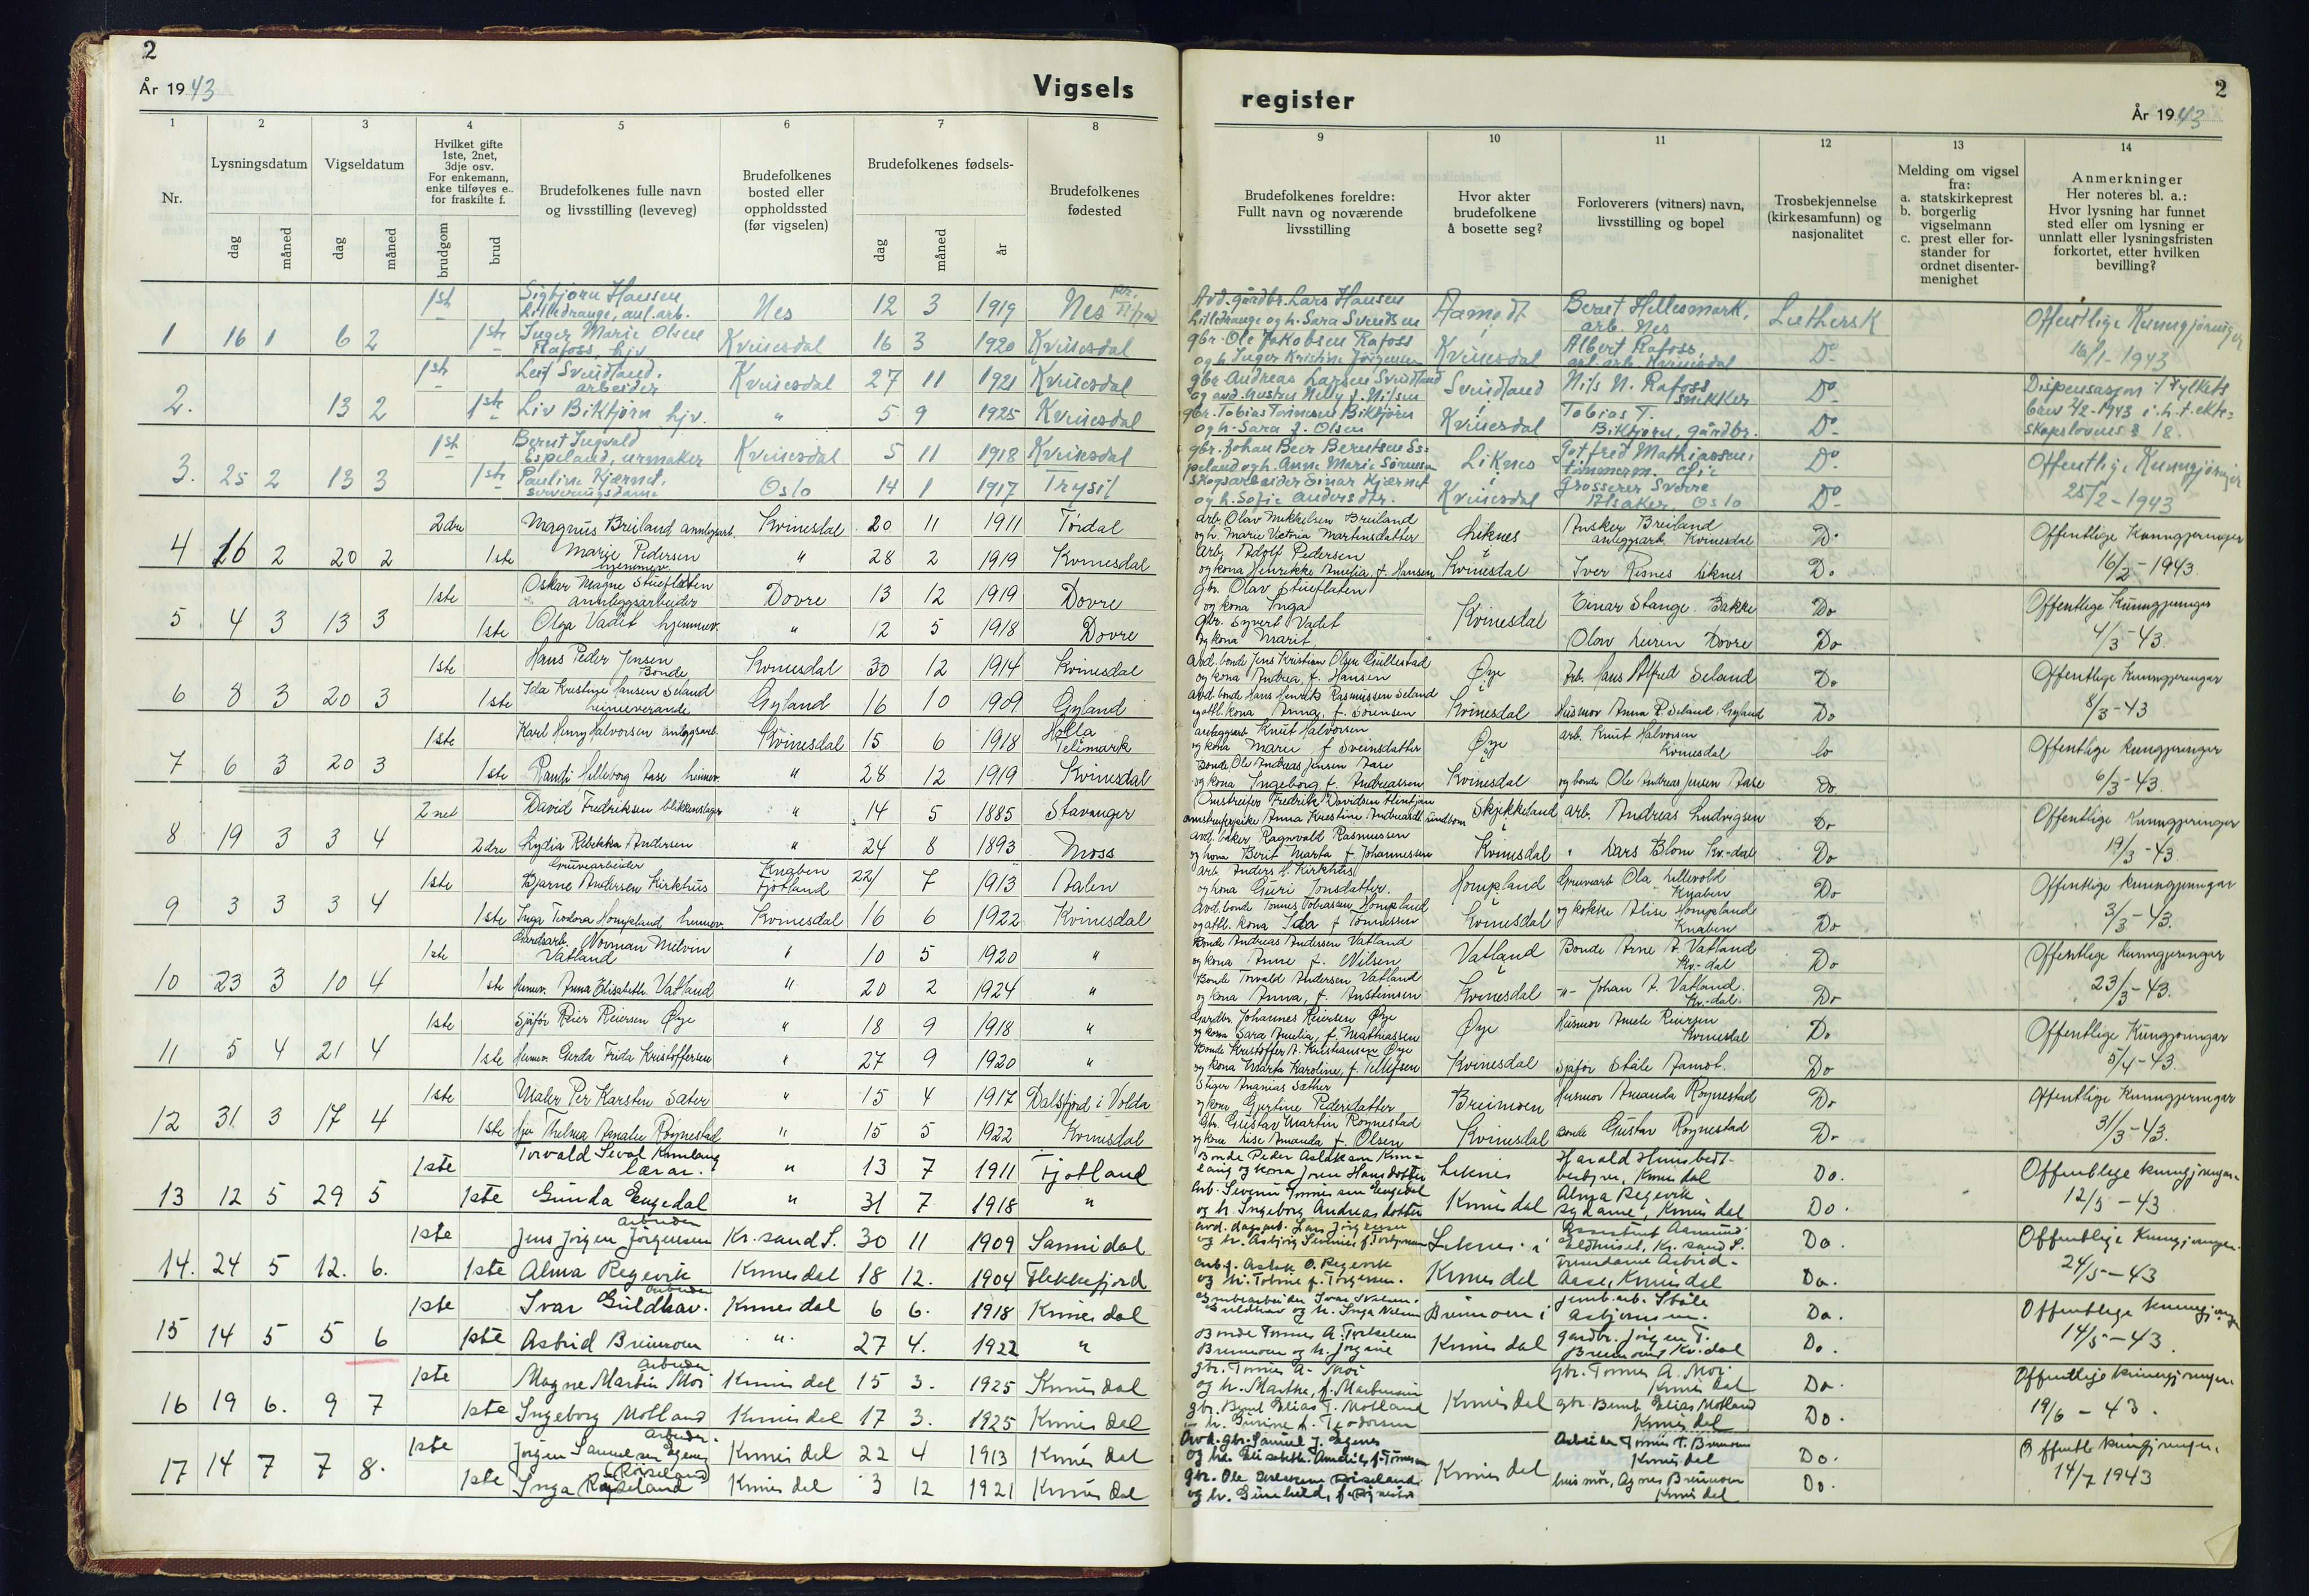 2
År 1943
Vigsels
1
2
3
4
5
6
7
8
Nr.
Lysningsdatum
Vigseldatum
Hvilket gifte
1ste, 2net,
3dje osv.
For enkemann,
enke tilføyes e..
for fraskilte f.
Brudefolkenes fulle navn
og livsstilling (leveveg)
Brudefolkenes
bosted eller
oppholdssted
(før vigselen)
Brudefolkenes fødsels-
Brudefolkenes
fødested
dag
måned
dag
måned
brudgom
brud
dag
måned
år
1ste Sigbjørn Hansen
Lilledrange, anl.arb. Nes 12 3 1919 Nes
1 16 1 6 2 1ste Inger Marie Olsen
Rafoss, hjv. Kvinesdal 16 3 1920 Kvinesdal
1ste Leif Svindland.
arbeider Kvinesdal 27 11 1921 Kvinesdal
2. 13 2 1ste Liv Bikfjörn hjv. " 5 9 1925 Kvinesdal
1ste Bernt Ingvald
Espeland, urmaker Kvinesdal 5 11 1918 Kvinesdal
3. 25 2 13 3 1ste Pauline Kjærnet,
serveringsdame Oslo 14 1 1917 Trysil
2dre Magnus Breiland anleggsarb. Kvinesdal 20 11 1911 Tördal
4 16 2 20 2 1ste Marie Pedersen
hjemmev. " 28 2 1919 Kvinesdal
1ste Oskar Magne Stueflaten
annleggsarbeider Dovre 13 12 1919 Dovre
5 4 3 13 3 1ste Olga Vadet hjemmev. " 12 5 1918 Dovre
1ste Hans Peder Jensen
Bonde Kvinesdal 30 12 1914 Kvinesdal
6 8 3 20 3 1ste Ida Kristine Hansen Seland
heimeverande Gyland 16 10 1909 Gyland
1ste Karl Henry Halvorsen anleggsarb. Kvinesdal 15 6 1918 Holla
Telemark
7 6 3 20 3 1ste Randi Hilleborg Aase heimev. " 28 12 1919 Kvinesdal
2net David Fredriksen blikkenslager " 14 5 1885 Stavanger
8 19 3 3 4 2dre Lydia Rebekka Andersen " 24 8 1893 Moss
Gruvearbeider
1ste Bjarne Andersen Kirkhus Knaben
Fjotland 22/ 7 1913 Aalen
9 3 3 3 4 1ste Inga Teodora Hompland heimev. Kvinesdal 16 6 1922 Kvinesdal
1ste Gardsarb. Norman Melvin
Vatland " 10 5 1920 "
10 23 3 10 4 1ste Heimev. Anna Elisabeth Vatland " 20 2 1924 "
1ste Sjåför Reier Reiersen Øye " 18 9 1918 "
11 5 4 21 4 1ste Heimev. Gerda Frida Kristoffersen " 27 9 1920 "
1ste Maler Per Karsten Sæter " 15 4 1917 Dalsfjord i Volda
12 31 3 17 4 1ste hjv. Thelma Amalie Röynestad " 15 5 1922 Kvinesdal
1ste Torvald Seval Kvinlaug
lærar. " 13 7 1911 Fjotland
13 12 5 29 5 1ste Gunda Engedal " 31 7 1918 "
arbeider
1ste Jens Jörgen Jörgensen Kr.sand S. 30 11 1909 Sannidal
14. 24 5 12. 6. 1ste Alma Regevik Kvinesdal 18 12. 1904 Flekkefjord
arbeider
1ste Ivar Guldhav. Kvinesdal 6 6. 1918 Kvinesdal
15 14 5 5 6 1ste Astrid Breimoen " 27 4. 1922 "
arbeider
1ste Magne Martin Moi Kvinesdal 15 3. 1925 Kvinesdal
16 19 6. 9 7 1ste Ingeborg Motland Kvinesdal 17 3. 1925 Kvinesdal
arbeider.
1ste Jörgen Samuelsen Egenes Kvinesdal 22 4 1913 Kvinesdal
(Röiseland)
17 14 7 7 8. 1ste Inga Röiseland Kvinesdal 3 12 1921 Kvinesdal
register
2
År 1943
9
10
11
12
13
14
Brudefolkenes foreldre:
Fullt navn og noværende
livsstilling
Hvor akter
brudefolkene
å bosette seg?
Forloverers (vitners) navn,
livsstilling og bopel
Trosbekjennelse
(kirkesamfunn) og
nasjonalitet
Melding om vigsel
fra:
a. statskirkeprest
b. borgerlig
vigselmann
c. prest eller for-
stander for
ordnet disenter-
menighet
Anmerkninger
Her noteres bl. a.:
Hvor lysning har funnet
sted eller om lysning er
unnlatt eller lysningsfristen
forkortet, etter hvilken
bevilling?
Avd. gårdbr. Lars Hansen
Lilledrange og h. Sara Svendsen Aamodt Bernt Hellesmark,
arb. Nes Luthersk Offentlige Kunngjöringer
gbr. Ole Jakobsen Rafoss
og h. Inger Kristine Jörgensen Kvinesdal Albert Rafoss
anl.arb. Kvinesdal Do 16/1-1943
gbr. Andreas Larsen Svindland
og avd. hustru Nelly f. Nilsen Svindland Nils N. Rafoss
snikker Do Dispensasjon i fylkets
gbr. Tobias Tönnesen Bikfjörn
og h. Sara f. Olsen Kvinesdal Tobias T.
Bikfjörn, gårdbr. Do brev 2/2-1943 i.h.t. ekte=
skapslovens § 18.
gbr. Johan Beer Berntsen Es=
peland og h. Anne Marie Sörensen Liknes Gotfred Mathiassen,
tömmerm. Lie Do Offentlige Kunngjöringer
Skogsarbeider Einar Kjærnet
og h. Sofie Andersdtr. Kvinesdal Grosserer Sverre
Alsaker, Oslo Do 25/2-1943
arb. Olav Mikkelsen Breiland
og h. Marie Victoria Martinsdatter Liknes Ansker Breiland
anleggsarb. Kvinesdal Do Offentlige Kunngjeringer
Arb. Adolf Pedersen
og kona Henrikke Amelia f. Hansen Kvinesdal Iver Risnes Liknes Do 16/2-1943.
gbr. Olav Stueflaten
og kona Inga Kvinesdal Einar Stange. Bakke Do Offentlige Kunngjeringer
gbr. Syvert Vadet
og kona Marit Olav Leiren Dovre Do 4/3-43.
Avd. bonde Jens Kristian Olsen Gullestad
og kona Andrea f. Hansen Øye Arb. Hans Alfred Seland Do Offentlige Kunngjeringar
avd. bonde Hans Henrik Rasmussen Seland
og attl. kona Anna f. Sörensen Kvinesdal Husmor Anna R. Seland. Gyland Do 8/3-43
anleggsarb Knut Halvorsen
og kona Marie f. Sveinsdatter Øye arb. Knut Halvorsen
Kvinesdal Do Offentlige kungjeringer
Bonde Ole Andreas Jensen Aase
og kona Ingeborg f. Andreassen Kvinesdal og bonde Ole Andreas Jensen Aase Do 6/3-43.
Omstreifer Fredrik Davidsen
omstreiferpike Anna Kristine Skjekkeland arb. Andreas Ludvigsen Do Offentlige kunngjeringer
avd. baker Ragnvald Rasmussen
og kona Berit Marta f. Johannessen Kvinesdal " Lars Blom Kv.-dal Do 19/3-43.
arb. Anders H. Kirkhus
og kona Guri Jonsdatter. Hompland Gruvearb Ola Lillevold
Knaben Do Offentlige kunngjeringar
Avd. bonde Tonnes Tobiassen Hompland
og attl. kona Ida f Tönnessen Kvinesdal og kokke Alise Hompland
Knaben Do 3/3-43.
Bonde Andreas Andersen Vatland
og kona Anne f. Nilsen Vatland Bonde Arne A. Vatland
Kv.-dal Do Offentlige kunngjeringar
Bonde Torvald Andersen Vatland
og kona Anna, f. Anstensen Kvinesdal -"- Johan A. Vatland.
Kv.-dal. Do 23/3-43.
Gardbr. Johannes Reiersen Øye
og kona Sara Amelia, f. Mathiassen Øye Husmor Amele Reiersen
Kvinesdal Do Offentlige Kungjöringar
Bonde Kristoffer A. Kristiansen Øye
og kona Marta Karoline, f. Tellefsen Kvinesdal Sjåför Ståle Aamot. Do 5/4-43.
Stiger Ananias Sæther
og kona Gjertine Pedersdatter Breimoen Husmor Amanda Röynestad Do Offentlige Kunngjeringar
Gbr. Gustav Martin Röynestad
og kona Lise Amanda f. Olsen Kvinesdal Bonde Gustav Röynestad Do 31/3-43.
Bonde Peder Aslaksen Kvin=
laug og kona Joren Hansdotter Liknes Harald Hunsbedt-
Kvinesdal Do. Offentlege kunngjeringar.
Arb. Severin Tönnessen Engedal
og h. Ingeborg Andreasdotter Kvinesdal Alma Regevik
sydame, Kvinesdal Do. 12/5-43
avd. dagarb. Lars Jörgensen
og h. Asbjörg Liknes i Assistent Aamund
Eldhuset, Kr.sand S. Do. Offentlige Kunngjeringar.
arb.f. Aslak O. Regevik
og h. Tobine f. Torgersen. Kvinesdal Astrid
Aase, Kvinesdal Do. 24/5-43
Grubearbeider Ivar Nilsen
Guldhav og h. Inga Nilsen Breimoen i jernb.arb. Ståle
Asbjörnsen. Do. Offentlege kunngjeringar
Bonde Tönnes A. Torkelsen
Breimoen og h. Jörgine Kvinesdal gardbr. Jörgen T.
Breimoen, Kv.dal Do. 14/5-43.
gbr. Tönnes A. Moi
og h. Marthe, f. Martinsen Kvinesdal gbr. Tönnes A. Moi
Kvinesdal Do. Offentlige kunngjeringar.
gbr. Bernt Elias T. Motland
og h. Gurine f. Teodorsen gbr. Bernt Elias Motland
Kvinesdal Do. 19/6-43.
Avd. gbr. Samuel J. Egenes
og h. Elisabeth Amelie, f. Tönnesen Kvinesdal Arbeider Tönnes T. Breimoen
Kvinesdal Do. Offentl. kunngjeringar.
gbr. Ole Röiseland
og h. Gunhild, husmor, Agnes Breimoen
Kvinesdal Do. 14/7 1943